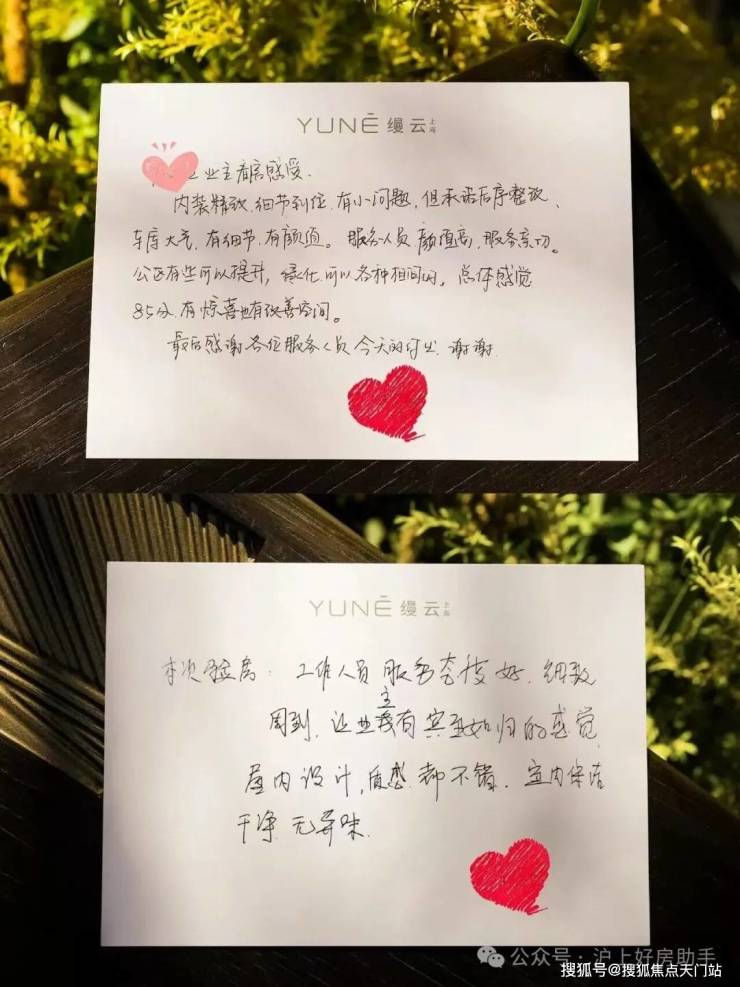 YUNĒ 缦云 上海
业主看房感受.
内装精致.细节到位.有小问题,但承诺后序整改、
车库大气,有细节,有颜值。服务人员 颜值高,服务亲切。
公区有些可以提升,绿化可以各种相间的。总体感觉
85分.有惊喜也有改善空间。
最后感谢各位服务人员今天的付出 谢谢.
YUNĒ 缦云 上海
本次验房:工作人员服务态度好.细致
周到,让业主有宾至如归的感觉
屋内设计,质感都不错.室内保洁
干净 无异味.
公众号·沪上好房助手
搜狐号@搜狐焦点天门站